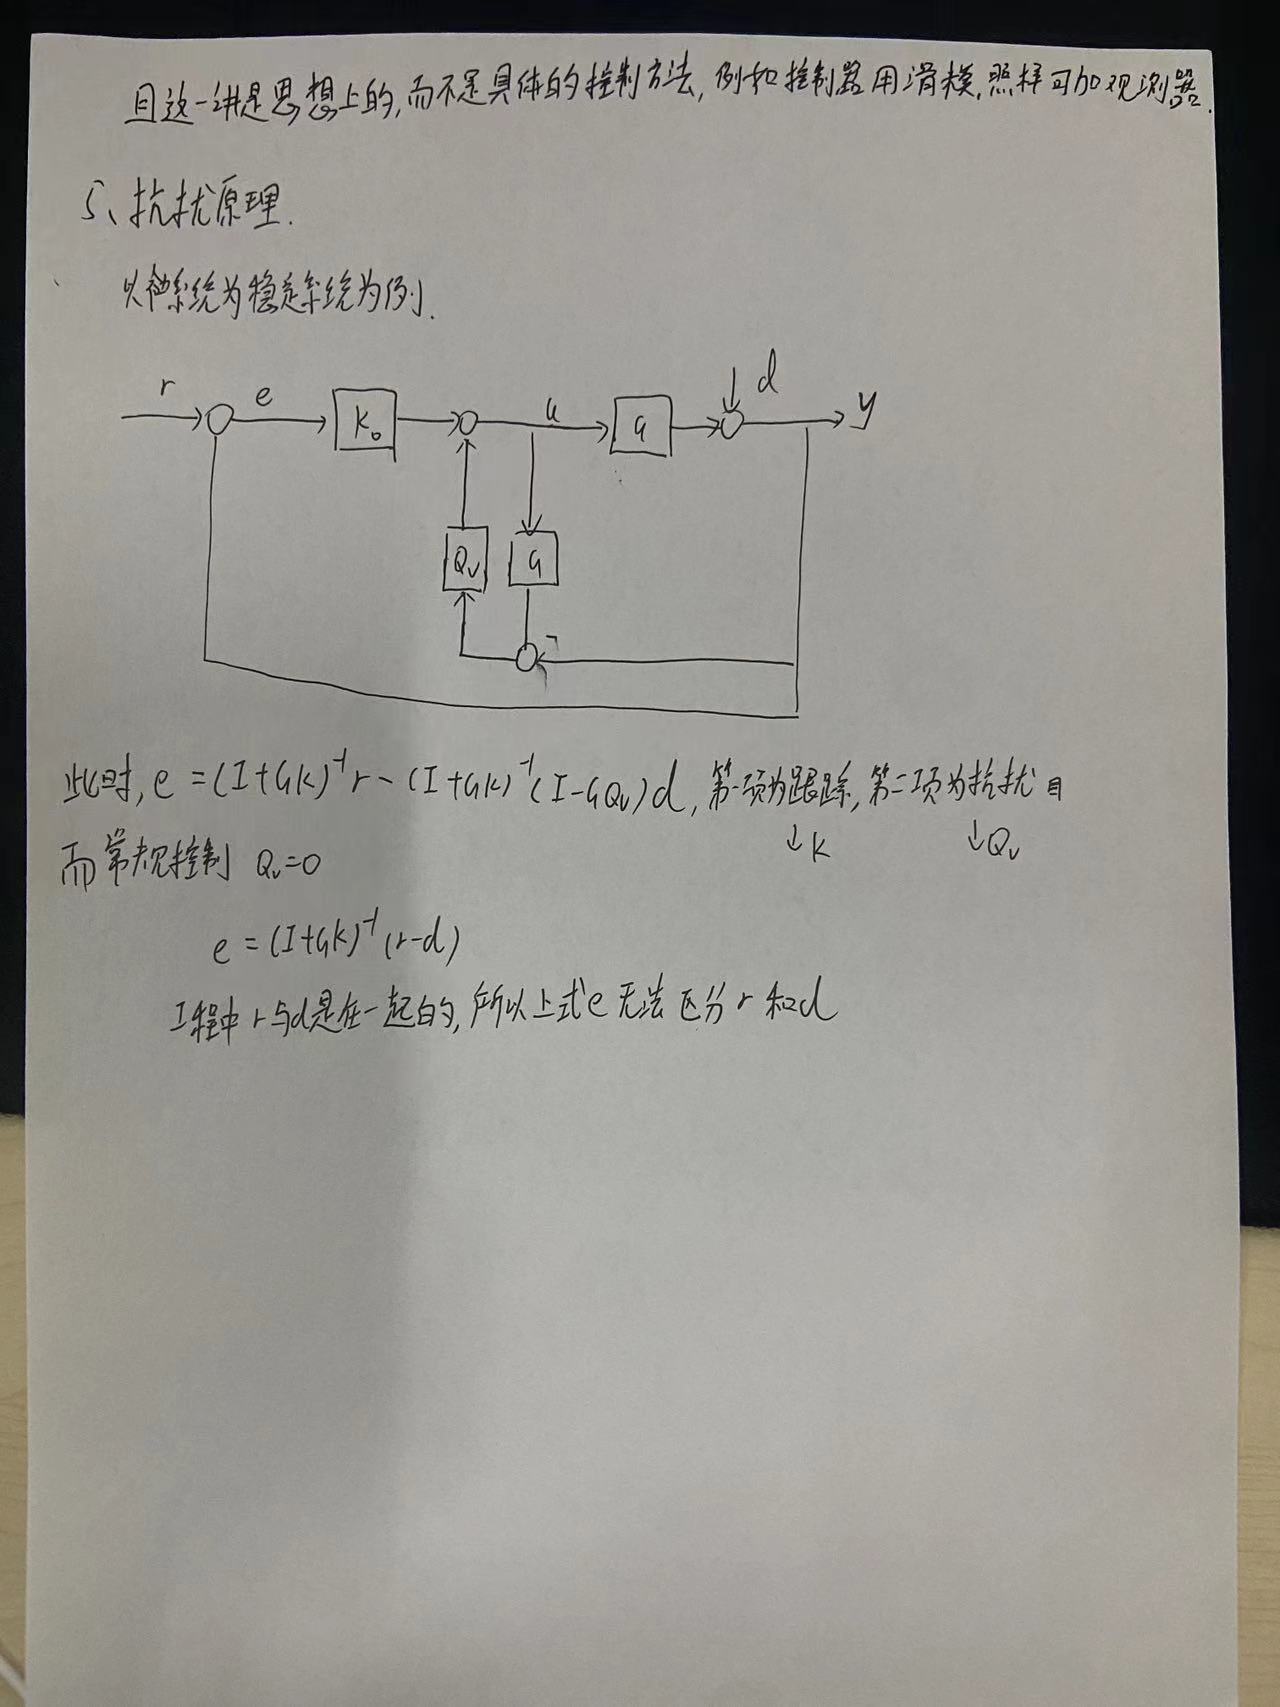 且这一讲是思想上的,而不是具体的控制方法,例如控制器用滑模,照样可加观测器.
5、抗扰原理.
以被系统为稳定系统为例.
r e K₀ u G d y
Qᵥ G
-
此时, e = (I+GK)⁻¹r - (I+GK)⁻¹(I-GQᵥ)d, 第一项为跟踪, 第二项为抗扰且
↓K ↓Qᵥ
而常规控制 Qᵥ=0
e = (I+GK)⁻¹(r-d)
工程中r与d是在一起的,所以上式e无法区分r和d